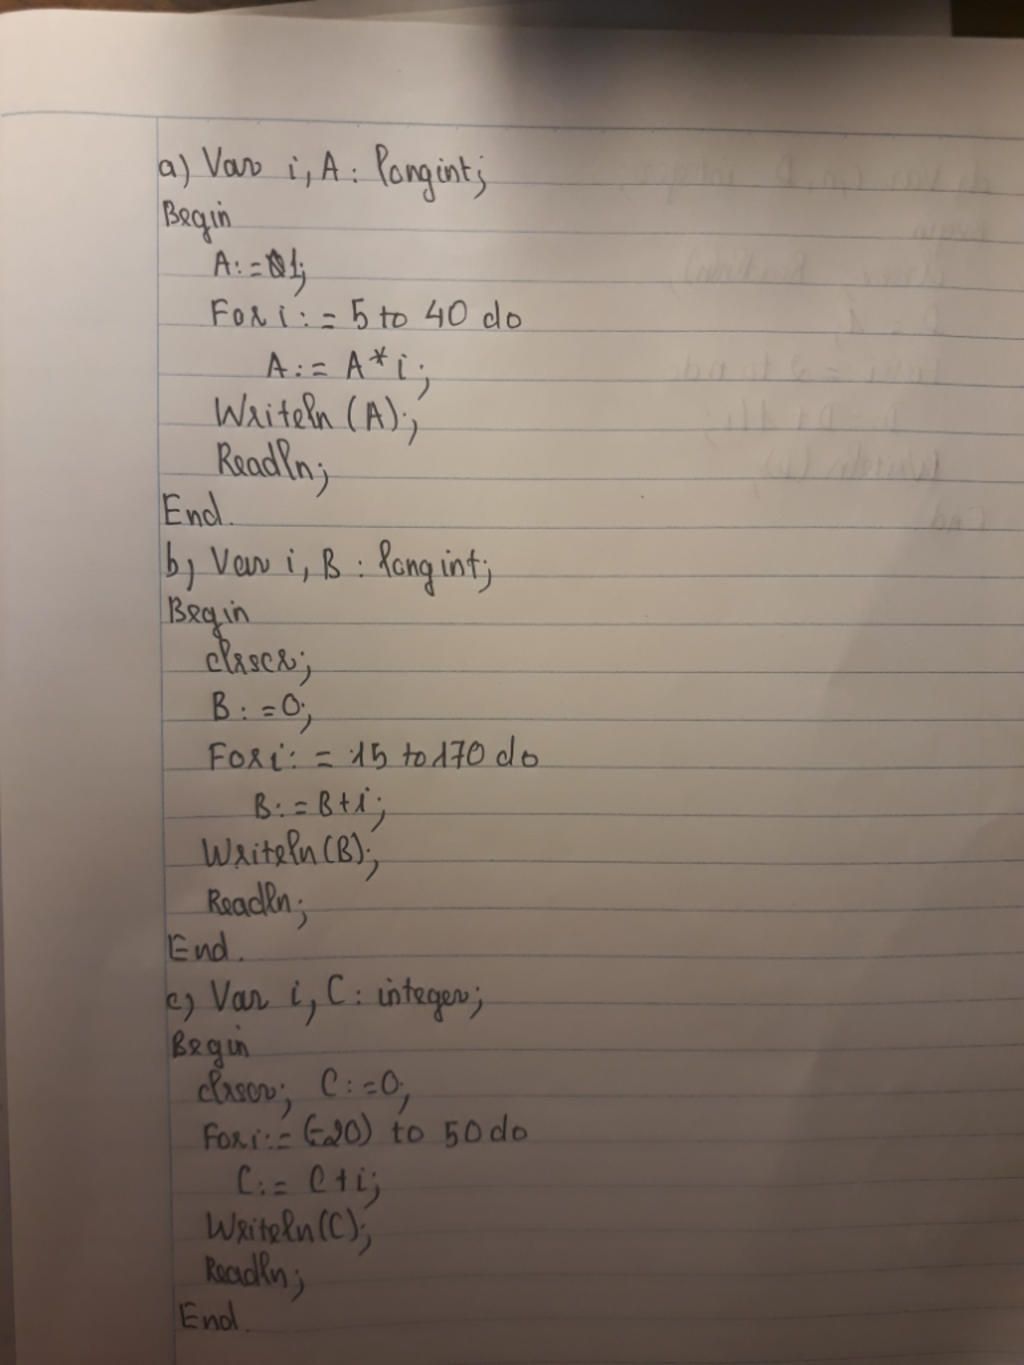 a) Var i, A : longint;
Begin
A:=1;
For i:= 5 to 40 do
A:= A*i;
Writeln (A);
Readln;
End.
b) Var i, B : longint;
Begin
clrscr;
B:=0;
For i:= 15 to 170 do
B:=B+i;
Writeln(B);
Readln;
End.
c) Var i, C: integer;
Begin
clrscr; C:=0;
For i:= (-20) to 50 do
C:= C+i;
Writeln(C);
Readln;
End.